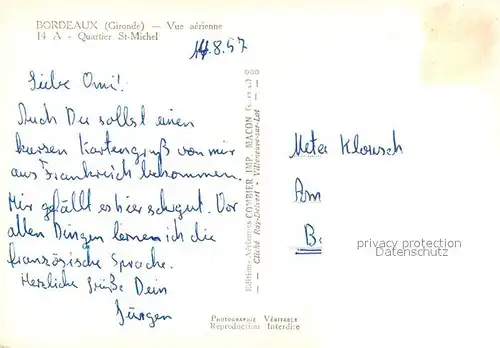 BORDEAUX (Gironde) — Vue aérienne
14 A - Quartier St-Michel
14.8.57
Liebe Omi!
Auch Du sollst einen
kurzen Kartengruß von mir
aus Frankreich bekommen.
Mir gefällt es hier sehr gut. Vor
allen Dingen lerne ich die
französische Sprache.
Herzliche Grüße Dein
Jürgen
Editions Aériennes COMBIER IMP. MACON
Cliché Ray-Delvert - Villeneuve-sur-Lot
Meta
Am
B.
privacy protection
Datenschutz
PHOTOGRAPHIE VÉRITABLE
Reproduction Interdite